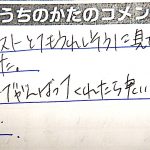 うちのかたのコメン
ストとてもうれしそうに見せ
た。
がんばってくれたら良い